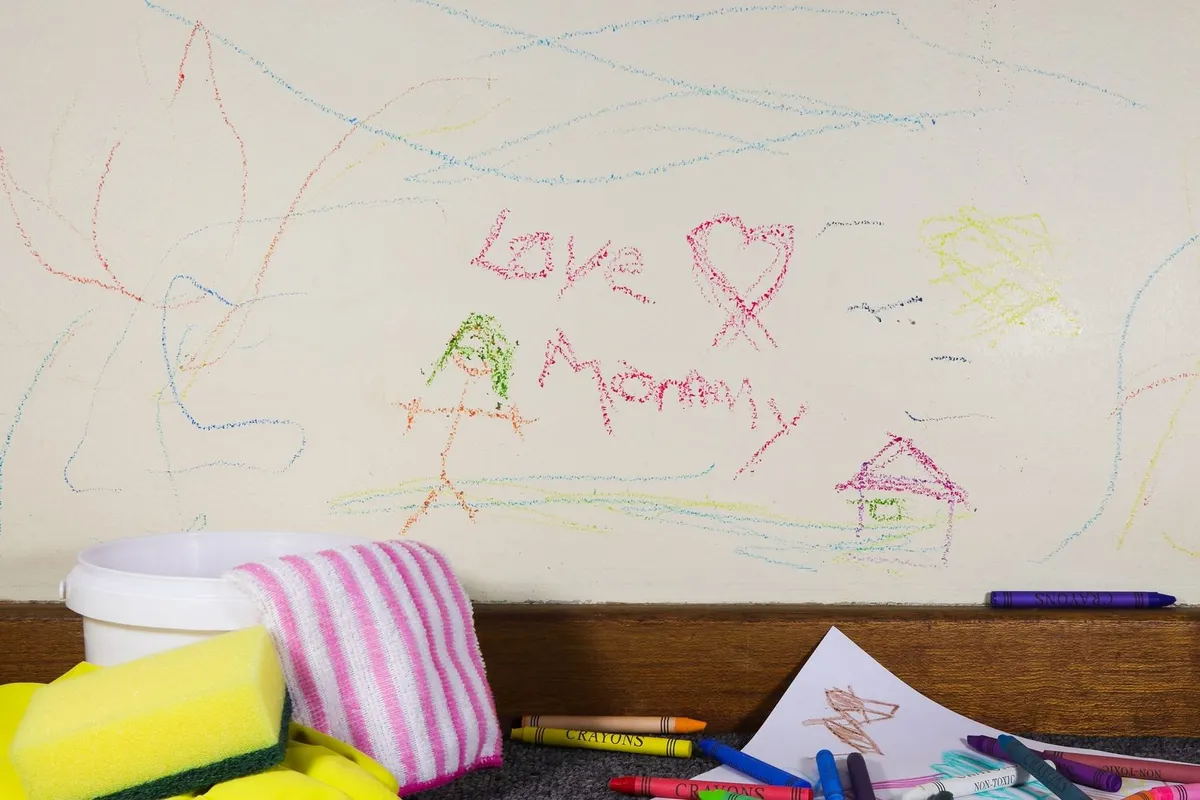 Love
Mommy
CRAYONS
CRAYONS
CRAYONS
NON-TOXIC
NON-TOXIC